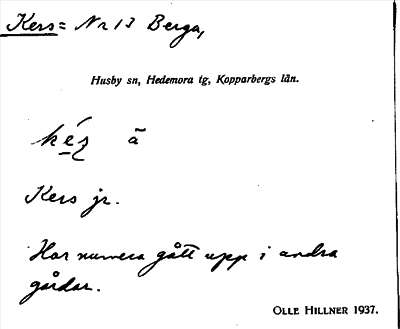 Kers= Nr 13 Berga,
Husby sn, Hedemora tg, Kopparbergs län.
ké̱ʒ ã
Kers jr.
Har numera gått upp i andra
gårdar.
OLLE HILLNER 1937.